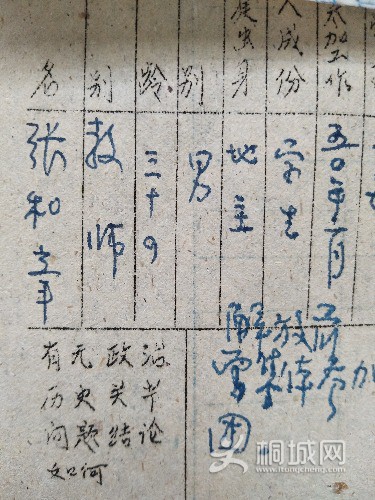 名
别
龄
别
庭出身
人成份
参加工作
张和
教师
三十
男
地主
学生
五0年一月
有无政治
历史关节
问题结论
如何
解放前参加
曾集体
团
桐城网
www.itongcheng.com